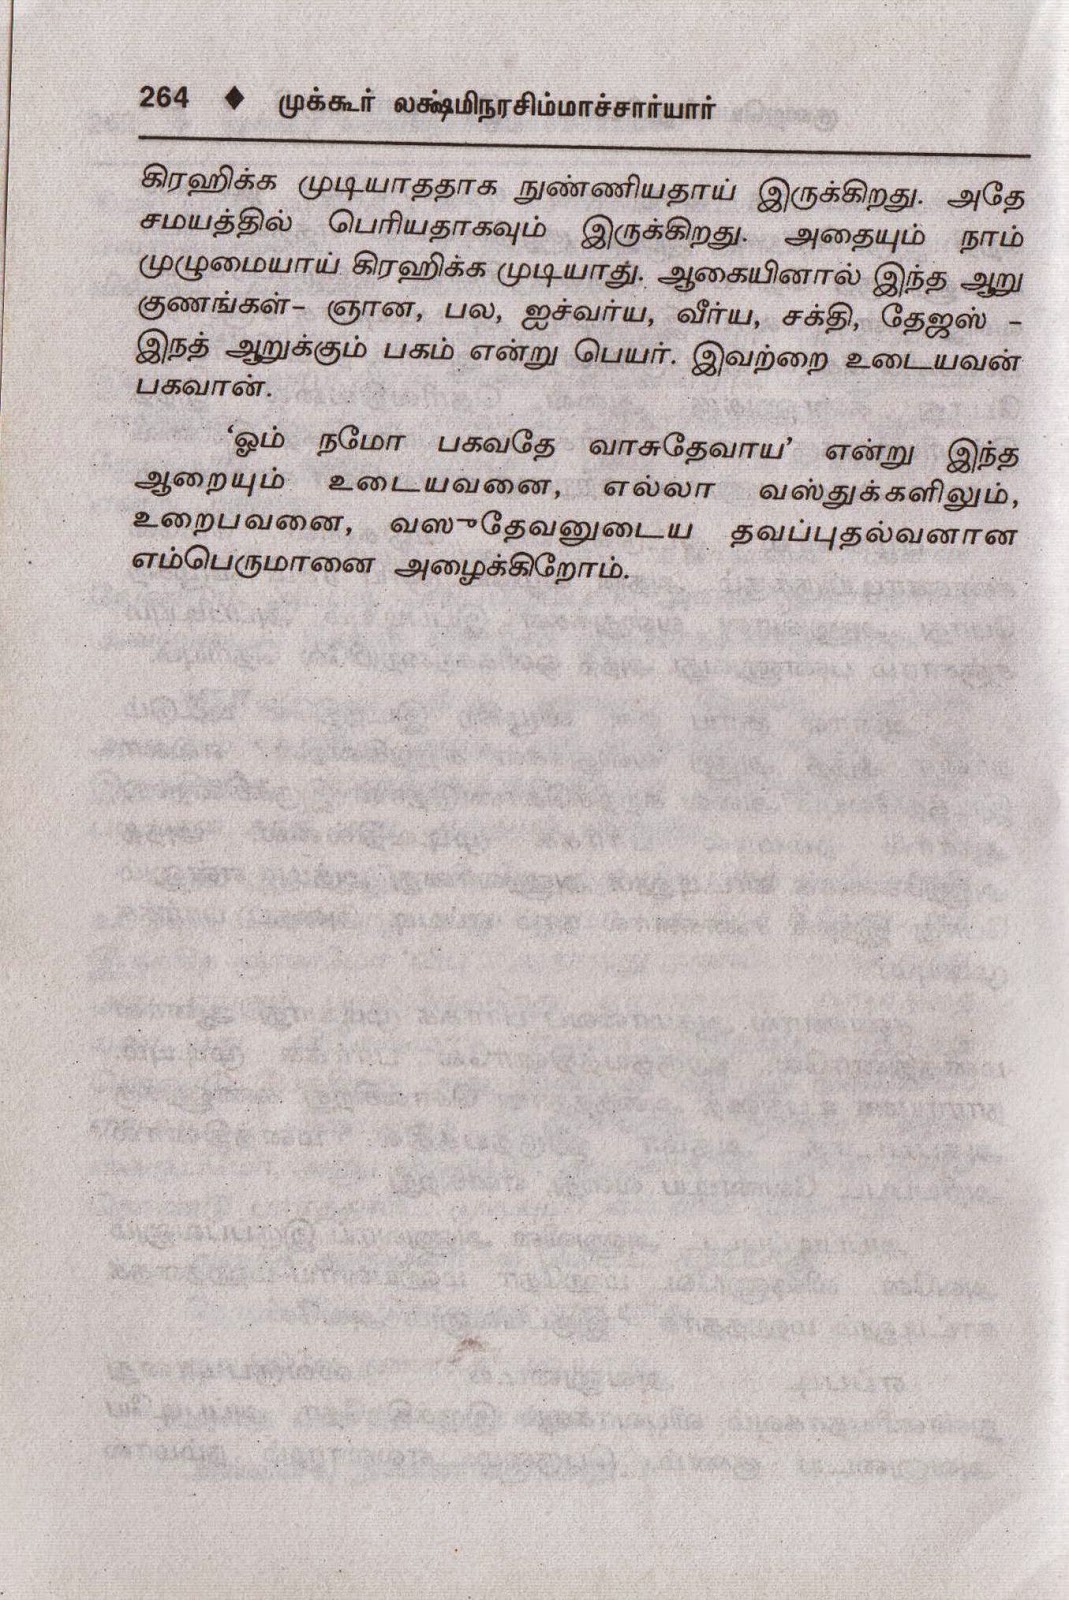 264 ♦ முக்கூர் லக்ஷ்மிநரசிம்மாச்சார்யார்
கிரஹிக்க முடியாததாக நுண்ணியதாய் இருக்கிறது. அதே
சமயத்தில் பெரியதாகவும் இருக்கிறது. அதையும் நாம்
முழுமையாய் கிரஹிக்க முடியாது. ஆகையினால் இந்த ஆறு
குணங்கள்– ஞான, பல, ஐச்வர்ய, வீர்ய, சக்தி, தேஜஸ் –
இநத் ஆறுக்கும் பகம் என்று பெயர். இவற்றை உடையவன்
பகவான்.
‘ஓம் நமோ பகவதே வாசுதேவாய’ என்று இந்த
ஆறையும் உடையவனை, எல்லா வஸ்துக்களிலும்,
உறைபவனை, வஸுதேவனுடைய தவப்புதல்வனான
எம்பெருமானை அழைக்கிறோம்.